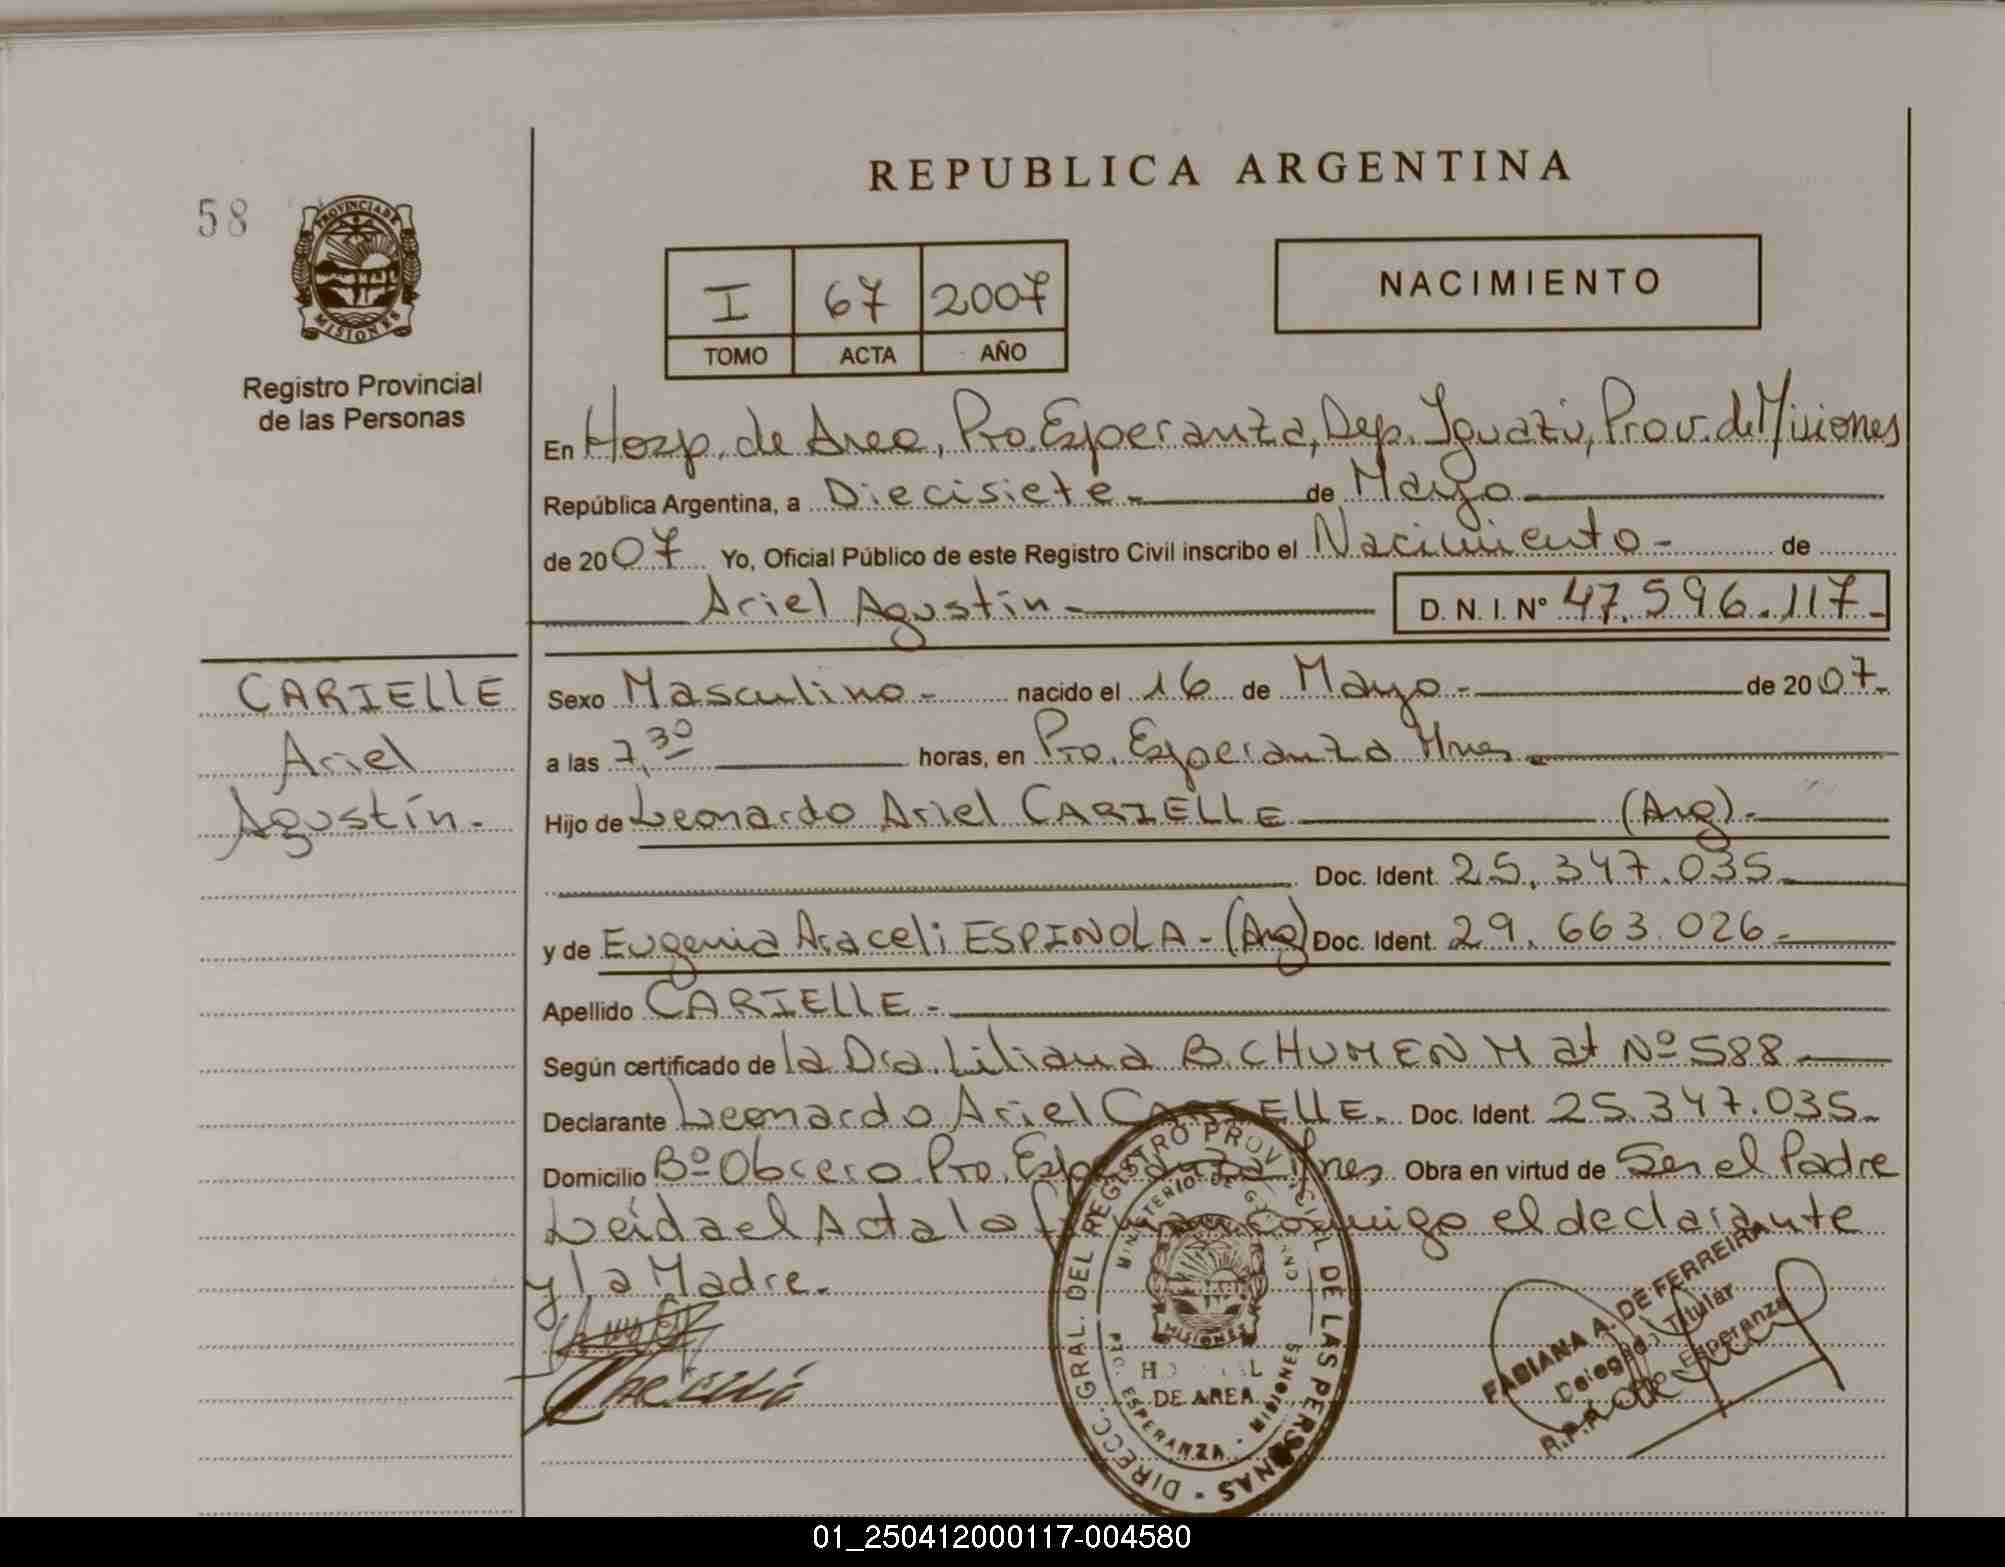 REPUBLICA ARGENTINA
58
PROVINCIA DE
MISIONES
Registro Provincial
de las Personas
I 67 2007
TOMO ACTA AÑO
NACIMIENTO
En Hosp. de Area, Pto. Esperanza, Dep. Iguazú, Prov. de Misiones
República Argentina, a Diecisiete - de Mayo
de 2007 Yo, Oficial Público de este Registro Civil inscribo el Nacimiento - de
Ariel Agustín - D. N. I. Nº 47.596.117-
CARIELLE
Ariel
Agustín.-
Sexo Masculino - nacido el 16 de Mayo - de 2007-
a las 7,30 horas, en Pto. Esperanza Mnes
Hijo de Leonardo Ariel CARIELLE (Arg).-
Doc. Ident. 25.347.035-
y de Eugenia Araceli ESPINOLA - (Arg) Doc. Ident. 29.663.026-
Apellido CARIELLE -
Según certificado de la Dra. Liliana B. CHUMEN Mat Nº 588
Declarante Leonardo Ariel CARIELLE. Doc. Ident. 25.347.035-
Domicilio Bº Obrero Pto. Esperanza Mnes. Obra en virtud de Ser el Padre
Leída el Acta la firman conmigo el declarante
y la Madre.
DIRECC. GRAL. DEL REGISTRO PROVINCIAL DE LAS PERSONAS
MINISTERIO DE
MISIONES
DE AREA
PTO. ESPERANZA - MISIONES
FABIANA A. DE FERREIRA
Delegada Titular
R.P.P. Pto. Esperanza
01_250412000117-004580